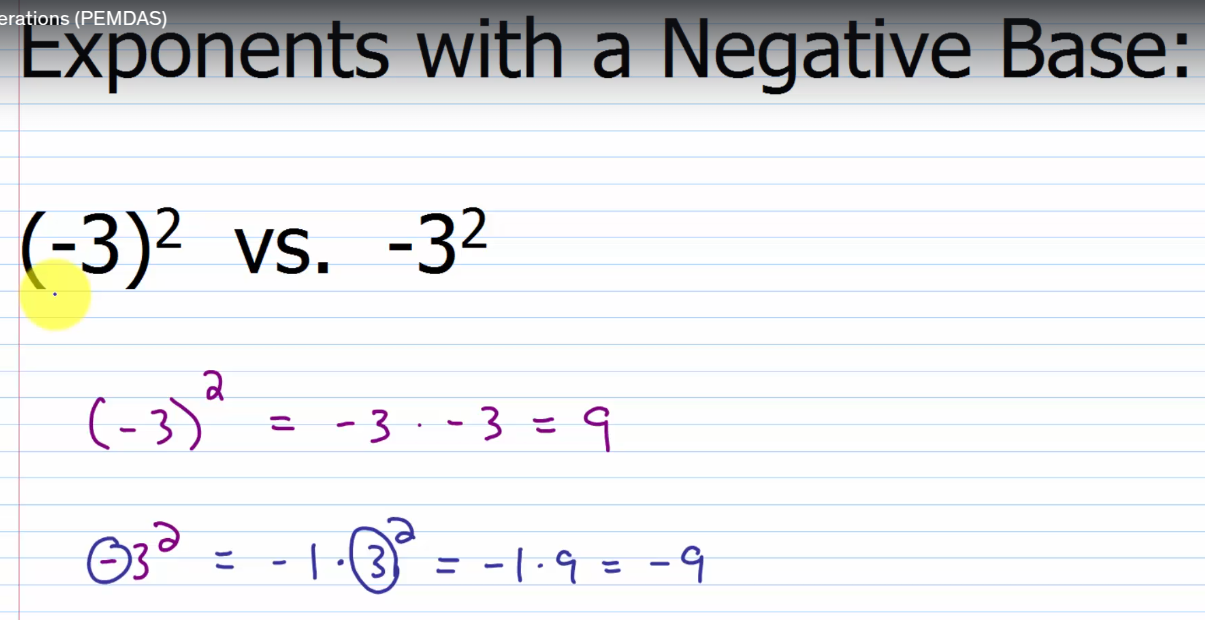 erations (PEMDAS)
Exponents with a Negative Base:
(-3)² vs. -3²
(-3)² = -3 · -3 = 9
-3² = -1 · 3² = -1 · 9 = -9